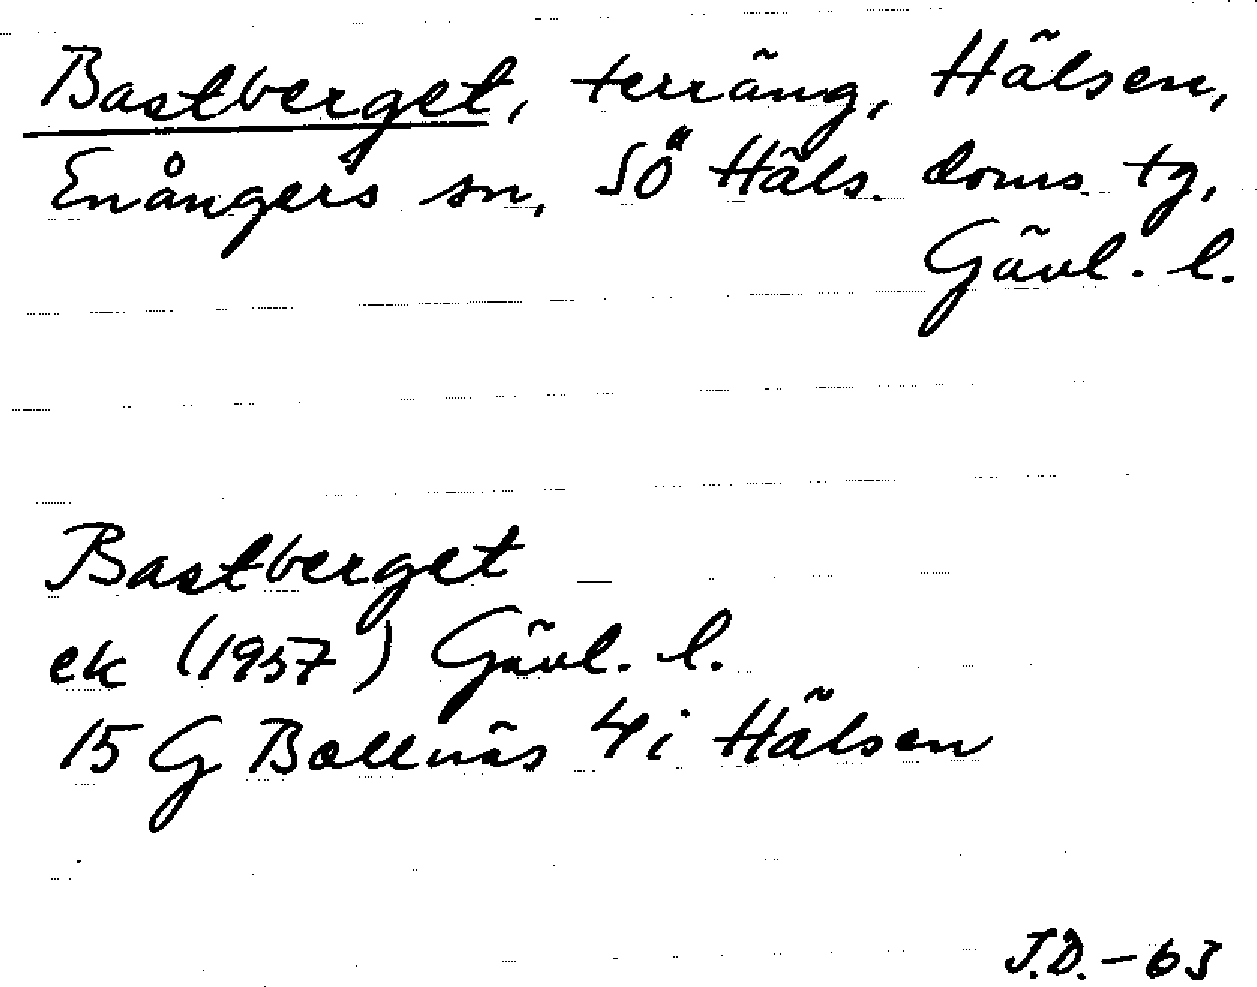 Bastberget, terräng, Hälsen,
Enångers sn, SÖ Häls. doms. tg,
Gävl. l.
Bastberget
ek (1957) Gävl. l.
15 G Bollnäs 4 i Hälsen
J.D. - 63